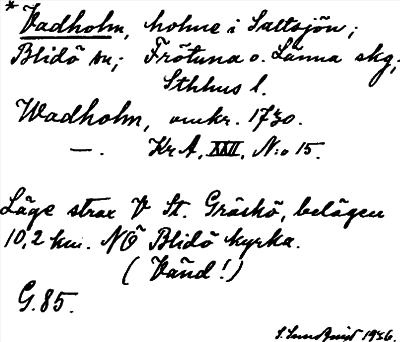 * Vadholm, holme i Saltsjön;
Blidö sn; Frötuna o. Länna skg;
Sthlms l.
Wadholm, omkr. 1730.
—. KrA, XXII, N:o 15.
Läge strax V St. Gräskö, belägen
10,2 km. NÖ Blidö kyrka.
(Vänd!)
G. 85.
S. Lundquist 1936.